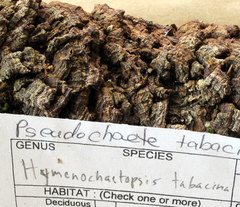 Pseudochaete tabaci
GENUS SPECIES
Hymenochaetopsis tabacina
HABITAT : (Check one or more)
Deciduous